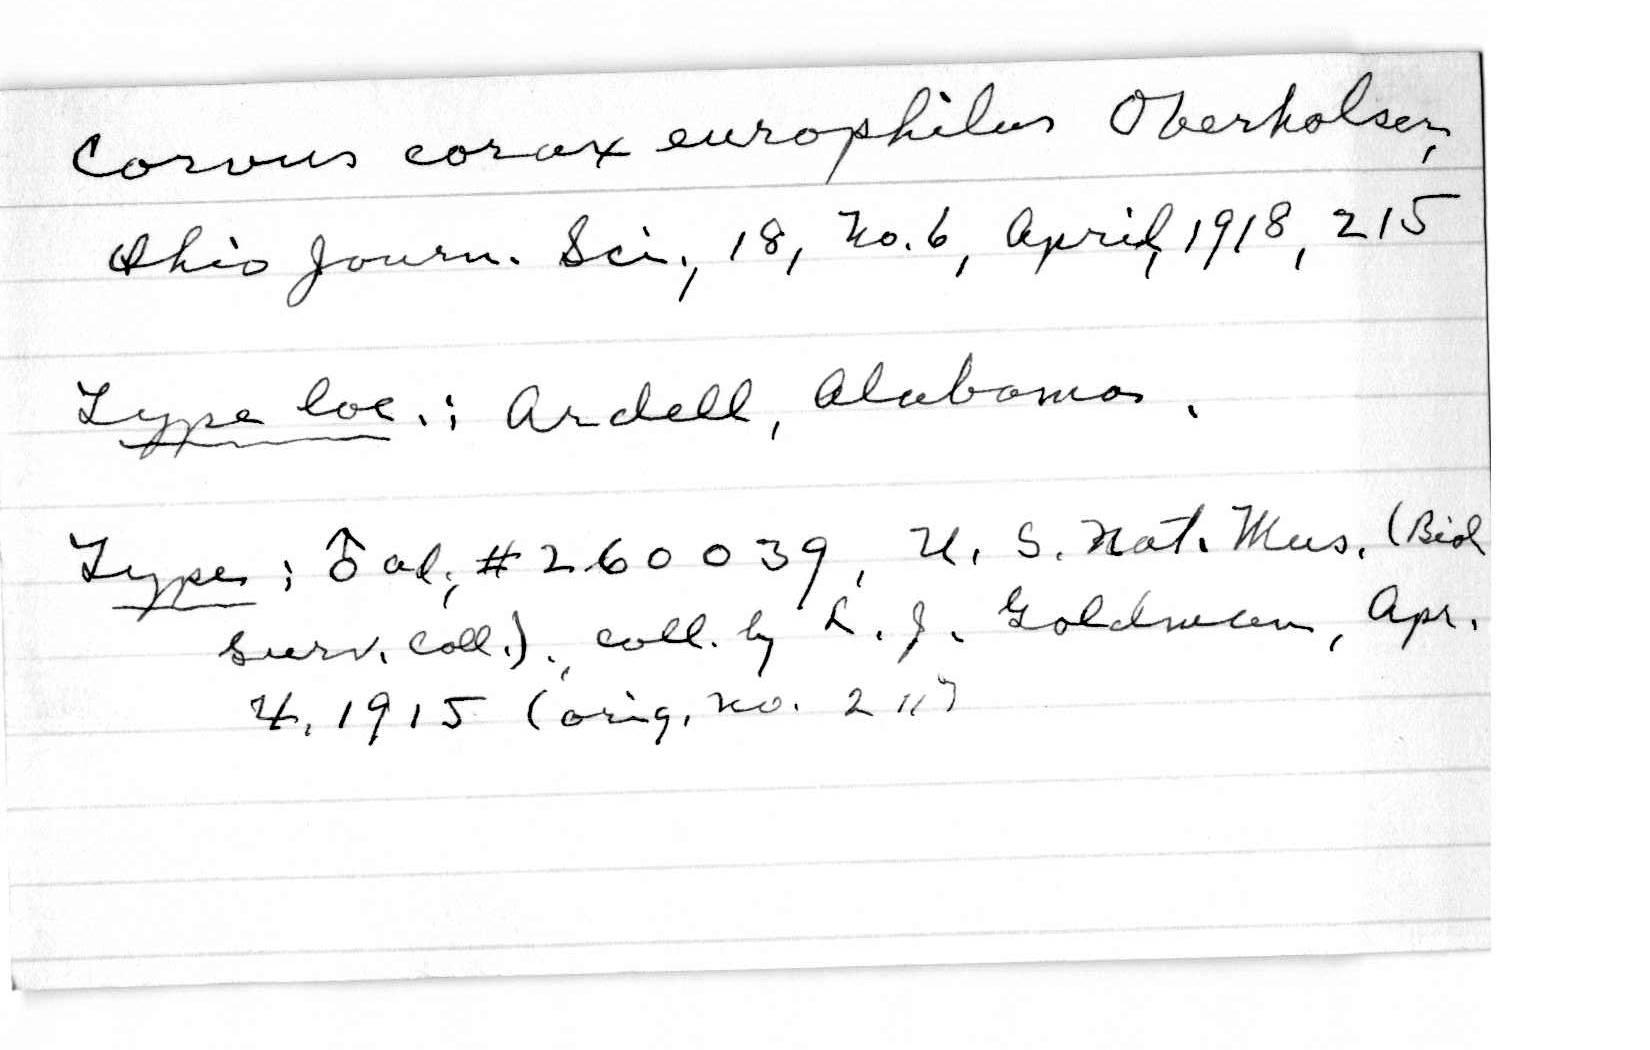 Corvus corax europhilus Oberholser,
Ohio Journ. Sci., 18, no. 6, April, 1918, 215
Type loc.: Ardell, Alabama.
Type: ♂ ad., #260039, U. S. Nat. Mus. (Biol
Surv. Coll.)., coll. by L. J. Goldman, Apr.
4, 1915 (orig. no.